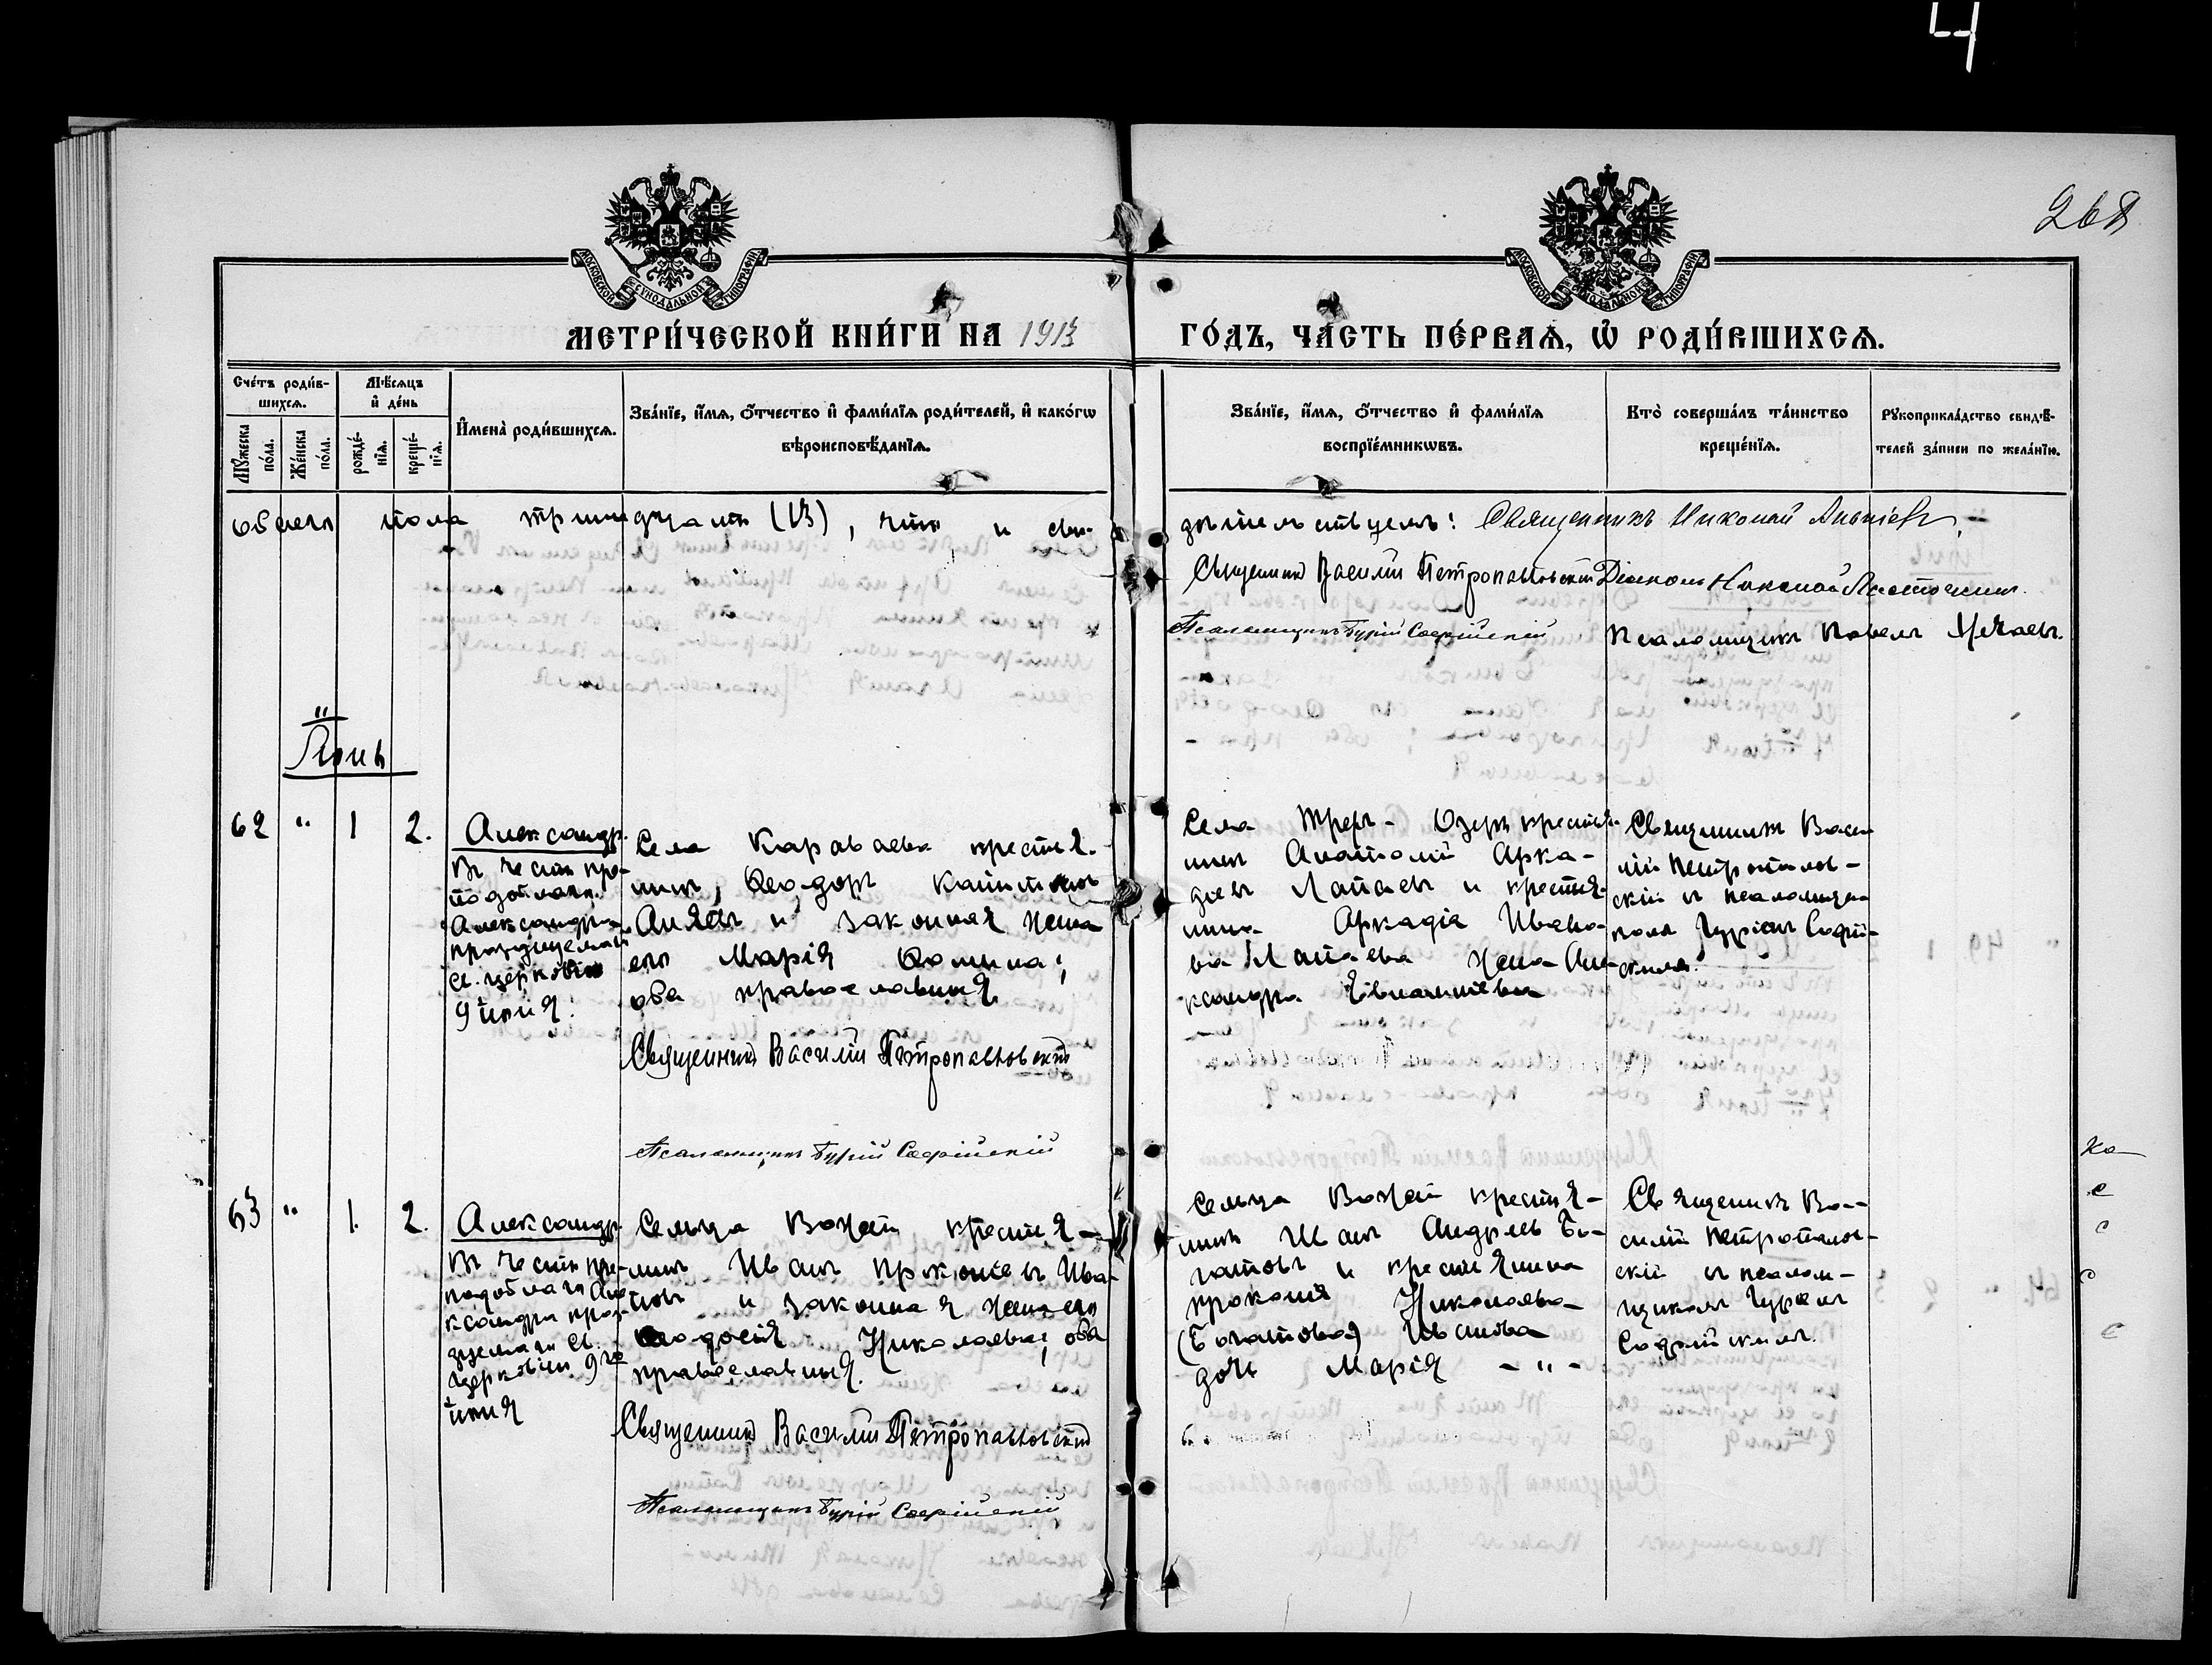 4
268
МОСКОВСКОЙ СѴНОДАЛЬНОЙ ТИПОГРАФІИ
МОСКОВСКОЙ СѴНОДАЛЬНОЙ ТИПОГРАФІИ
МЕТРИ́ЧЕСКОЙ КНИ́ГИ НА 1913
ГО́ДЪ, ЧА́СТЬ ПЕ́РВАѦ, Ѡ҆ РОДИ́ВШИХСѦ.
Сче́тъ роди́в-
шихсѧ.
Мѣ́сѧцъ
и҆ де́нь
Мꙋ́жеска
по́ла.
Же́нска
по́ла.
рожде́-
нїѧ.
креще́-
нїѧ.
И҆мена̀ роди́вшихсѧ.
Зва́нїе, и҆́мѧ, ѻ҆́тчество и҆ фами́лїѧ роди́телей, и҆ како́гѡ
вѣроисповѣ́данїѧ.
Зва́нїе, и҆́мѧ, ѻ҆́тчество и҆ фами́лїѧ
воспрїе́мникѡвъ.
Кто̀ соверша́лъ та́инство
креще́нїѧ.
Рꙋкоприкла́дство свидѣ́-
телей за́писи по жела́нїю.
пола тринадцать (13), что и сви-
дѣтельствуемъ: Священникъ Николай
Священникъ Василій Петропавловскій Діаконъ Николай Ласточкинъ.
Псаломщикъ Гурій Софійскій Псаломщикъ Павелъ Нечаевъ.
"
Іюнь
62 " 1 2.
Александръ.
Въ честь пре-
подобнаго
Александра
празднуемаго
св. церковію
9 іюня.
Села Караваева крестья-
нинъ, Ѳеодоръ Капитоновъ
и законная жена
его Марія Ѳомина;
оба православныя.
Священникъ Василій Петропавловскій
Псаломщикъ Гурій Софійскій
Села Трехъ-Озеръ крестья-
нинъ Анатолій Арка-
діевъ Лапаевъ и крестья-
нина Аркадія Ивано-
ва Лапаева жена Але-
ксандра
Священникъ Васи-
лій Петропавлов-
скій съ псаломщи-
комъ Гуріемъ Софій-
скимъ.
63 " 1. 2.
Александръ.
Въ честь пре-
подобнаго Але-
ксандра праз-
днуемаго св.
церковію 9го
іюня
Сельца Вожей крестья-
нинъ Иванъ Прокопіевъ Ива-
новъ и законная жена его
Ѳеодосія Николаева; оба
православныя.
Священникъ Василій Петропавловскій
Псаломщикъ Гурій Софійскій
Сельца Вожей крестья-
нинъ Иванъ Андреевъ Бо-
гатовъ и крестьянина
Прокопія Николаева
(Богатова) Иванова
дочь Марія - " -
Священникъ Ва-
силій Петропавлов-
скій съ псалом-
щикомъ Гуріемъ
Софійскимъ.
Ко
е
с
с
е